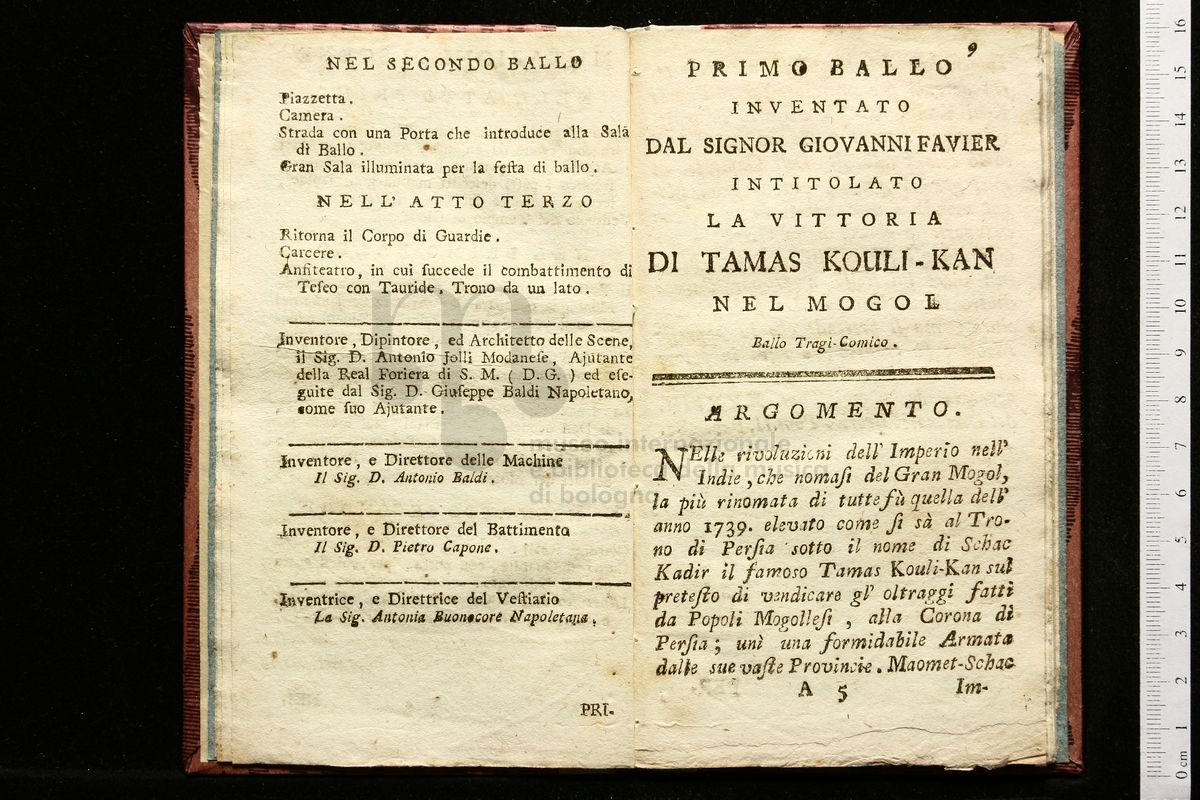 NEL SECONDO BALLO
Piazzetta.
Camera.
Strada con una Porta che introduce alla Sala
di Ballo.
Gran Sala illuminata per la feſta di ballo.
NELL' ATTO TERZO
Ritorna il Corpo di Guardie.
Carcere.
Anfiteatro, in cui ſuccede il combattimento di
Teſeo con Tauride. Trono da un lato.
Inventore, Dipintore, ed Architetto delle Scene,
il Sig. D. Antonio Jolli Modaneſe, Ajutante
della Real Foriera di S. M. ( D. G. ) ed eſe-
guite dal Sig. D. Giuſeppe Baldi Napoletano,
come ſuo Ajutante.
Inventore, e Direttore delle Machine
Il Sig. D. Antonio Baldi.
Inventore, e Direttore del Battimento
Il Sig. D. Pietro Capone.
Inventrice, e Direttrice del Veſtiario
La Sig. Antonia Buonocore Napoletana.
PRI-
9
PRIMO BALLO
INVENTATO
DAL SIGNOR GIOVANNI FAVIER
INTITOLATO
LA VITTORIA
DI TAMAS KOULI-KAN
NEL MOGOL
Ballo Tragi-Comico.
ARGOMENTO.
NElle rivoluzioni dell' Imperio nell'
Indie, che nomaſi del Gran Mogol,
la più rinomata di tutte fù quella dell'
anno 1739. elevato come ſi sà al Tro-
no di Perſia sotto il nome di Schac
Kadir il famoso Tamas Kouli-Kan sul
preteſto di vendicare gl' oltraggi fatti
da Popoli Mogolleſi, alla Corona di
Perſia; unì una formidabile Armata
dalle sue vaſte Provincie. Maomet-Schac
A 5
Im-
museo internazionale
e biblioteca della musica
di bologna
0 cm 1 2 3 4 5 6 7 8 9 10 11 12 13 14 15 16